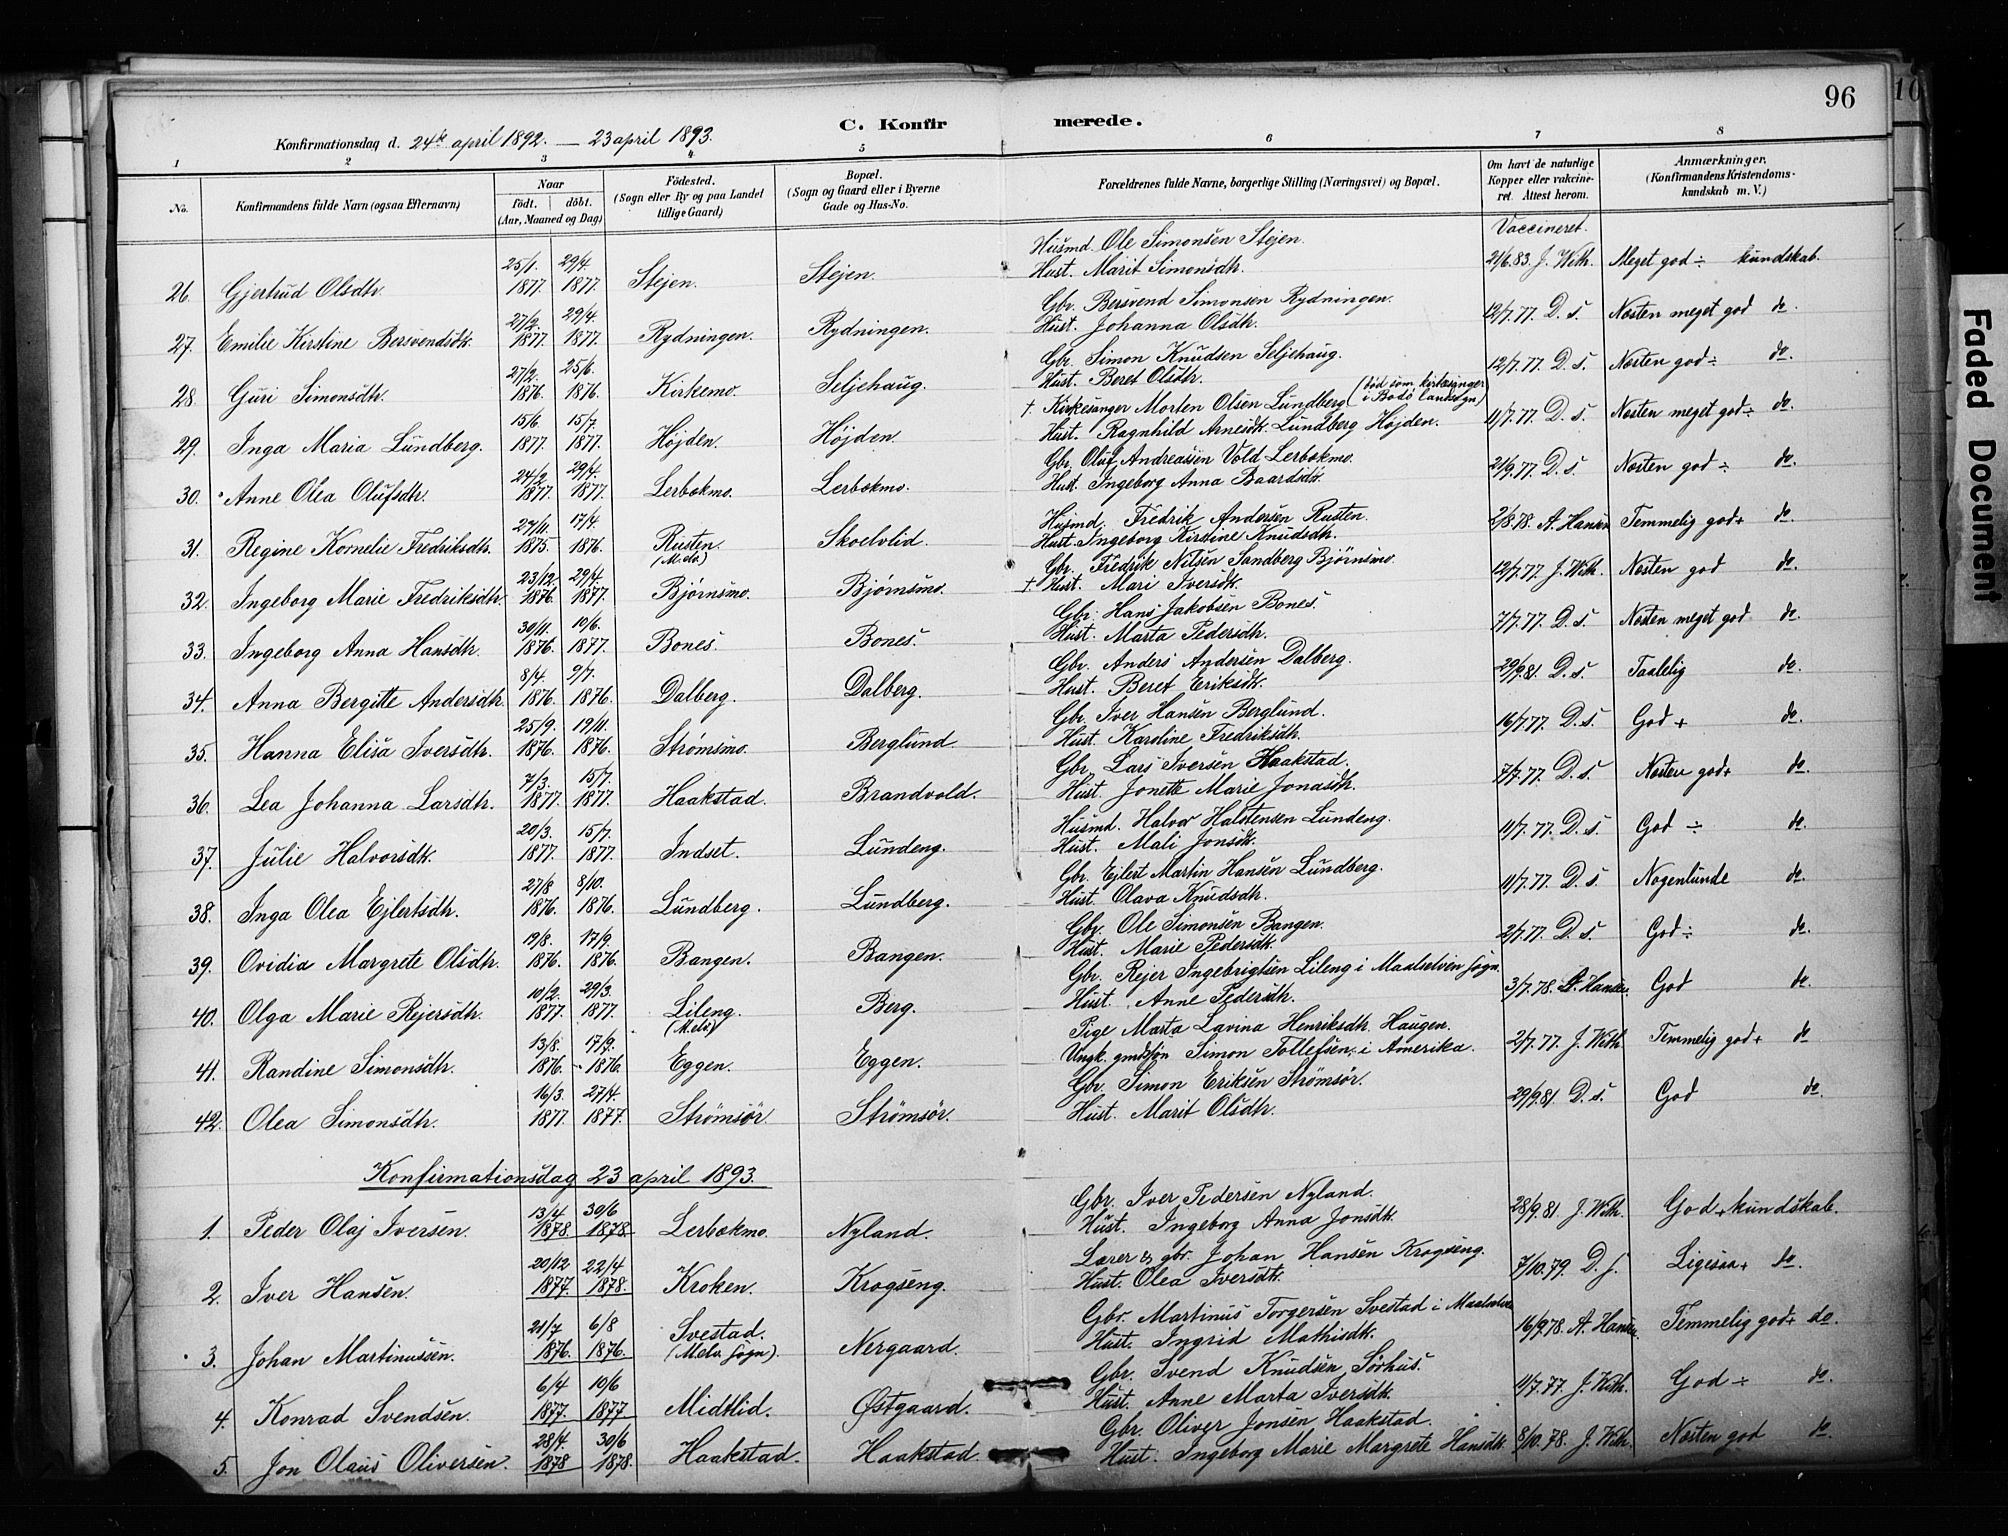 96
C. Konfirmerede.
Konfirmationsdag d. 24de april 1892. — 23 april 1893.
1 2 3 4 5 6 7 8
No. Konfirmandens fulde Navn (ogsaa Efternavn) Naar født. døbt. (Aar, Maaned og Dag) Fødested. (Sogn eller By og paa Landet tillige Gaard) Bopæl. (Sogn og Gaard eller i Byerne Gade og Hus-No. Forældrenes fulde Navne, borgerlige Stilling (Næringsvei) og Bopæl. Om havt de naturlige Kopper eller vakcineret. Attest herom. Anmærkninger. (Konfirmandens Kristendomskundskab m. V.)
Vaccineret.
26. Gjertrud Olsdtr. 25/1. 1877. 29/4. 1877. Stejen. Stejen. Husmd. Ole Simonsen Stejen. Hust. Marit Simonsdtr. 21/6.83. J. With. Meget god ÷ kundskab.
27. Emilie Kirstine Bersvendsdtr. 27/2. 1877. 29/4. 1877. Rydningen. Rydningen. Gbr. Bersvend Simonsen Rydningen. Hust. Johanna Olsdtr. 12/7.77. D. s. Næsten meget god do.
28. Guri Simonsdtr. 27/2. 1876. 25/6. 1876. Kirkemo. Seljehaug. Gbr. Simon Knudsen Seljehaug. Hust. Beret Olsdtr. 12/7.77. D. s. Næsten god ÷ do.
29. Inga Maria Lundberg. 15/6 1877. 15/7. 1877. Højden. Højden. † Kirkesanger Morten Olsen Lundberg (død som kirkesanger i Bodø landsogn) Hust. Ragnhild Arnesdtr. Lundberg Højden. 11/7.77. D. s. Næsten meget god ÷ do.
30. Anne Olea Olufsdtr. 24/2. 1877. 29/4. 1877. Lerbækmo. Lerbækmo. Gbr. Oluf Andreassen Vold Lerbækmo. Hust. Ingeborg Anna Baardsdtr. 21/9.77. D. s. Næsten god ÷ do.
31. Regine Kornelie Fredriksdtr. 27/11. 1875. 17/4. 1876. Rusten. (M.elv.) Skoelvlid. Husmd. Fredrik Andersen Rusten. Hust. Ingeborg Kirstine Knudsdtr. 2/8.78. A. Hansen Temmelig god + do.
32. Ingeborg Marie Fredriksdtr. 23/12. 1876. 29/4. 1877. Bjørnsmo. Bjørnsmo. Gbr. Fredrik Nilsen Sandberg Bjørnsmo. † Hust. Mari Iversdtr. 12/7.77. J. With. Næsten god do.
33. Ingeborg Anna Hansdtr. 30/11. 1876. 10/6. 1877. Bones. Bones. Gbr. Hans Jakobsen Bones. Hust. Marta Pedersdtr. 7/7.77. D. s. Næsten meget god do.
34. Anna Bergitte Andersdtr. 8/4. 1876. 9/7. 1876. Dalberg. Dalberg. Gbr. Anders Andersen Dalberg. Hust. Beret Eriksdtr. 29/9.81. D. s. Taalelig do.
35. Hanna Elisa Iversdtr. 25/9. 1876. 19/11. 1876. Strømsmo. Berglund. Gbr. Iver Hansen Berglund. Hust. Karoline Fredriksdtr. 16/7.77. D. s. God + do.
36. Lea Johanna Larsdtr. 7/3. 1877. 15/7. 1877. Haakstad. Brandvold. Gbr. Lars Iversen Haakstad. Hust. Jonette Marie Jonasdtr. 7/7.77. D. s. Næsten god + do.
37. Julie Halvorsdtr. 20/3. 1877. 15/7. 1877. Indset. Lundeng. Husmd. Halvor Halstensen Lundeng. Hust. Mali Jonsdtr. 11/7.77. D. s. God ÷ do.
38. Inga Olea Ejlertsdtr. 27/8 1876. 8/10. 1876. Lundberg. Lundberg. Gbr. Ejlert Martin Hansen Lundberg. Hust. Olava Knudsdtr. 11/7.77. D. s. Nogenlunde do.
39. Ovidia Margrete Olsdtr. 19/8. 1876. 17/9. 1876. Bangen. Bangen. Gbr. Ole Simonsen Bangen. Hust. Marie Pedersdtr. 2/7.77. D. s. God ÷ do.
40. Olga Marie Rejersdtr. 10/2. 1877. 29/3. 1877. Lileng. (M.elv.) Berg. Gbr. Rejer Ingebrigtsen Lileng i Maalselven sogn. Hust. Anne Pedersdtr. 3/7.78. A. Hansen. God do.
41. Randine Simonsdtr. 13/8. 1876. 17/9. 1876. Eggen. Eggen. Pige Marta Lavina Henriksdtr. Haugen. Ungk. gmdssøn Simon Tollefsen, i Amerika. 2/7.77. J. With Temmelig god + do
42. Olea Simonsdtr. 16/3. 1877. 27/4. 1877. Strømsør. Strømsør. Gbr. Simon Eriksen Strømsør. Hust. Marit Olsdtr. 29/9.81. D. s. God do.
Konfirmationsdag 23 april 1893.
1. Peder Olaj Iversen. 13/4 1878. 30/6 1878. Lerbækmo. Nyland. Gbr. Iver Pedersen Nyland. Hust. Ingeborg Anna Jonsdtr. 28/9.81 J. With. God + kundskab.
2. Iver Hansen. 20/12 1877. 22/4 1878. Kroken. Krogseng. Lærer & gbr. Johan Hansen Krogseng. Hust. Olea Iversdtr. 7/10.79. D. s. Ligesaa + do.
3. Johan Martinussen. 21/7 1876. 6/8 1876. Svestad. (M.elv. sogn). Nergaard. Gbr. Martinus Torgersen Svestad i Maalselven Hust. Ingrid Mathisdtr. 16/9.78. A. Hansen. Temmelig god + do.
4. Konrad Svendsen. 6/4 1877. 10/6 1877. Midtlid. Østgaard. Gbr. Svend Knudsen Sørhus. Hust. Anne Marta Iversdtr. 11/7.77. J. With. God ÷ do.
5. Jon Olaus Oliversen. 28/4. 1878 30/6 1878. Haakstad. Haakstad. Gbr. Oliver Jonsen Haakstad. Hust. Ingeborg Marie Margrete Hansdtr. 8/10.78. J. With. Næsten god do
Faded Document